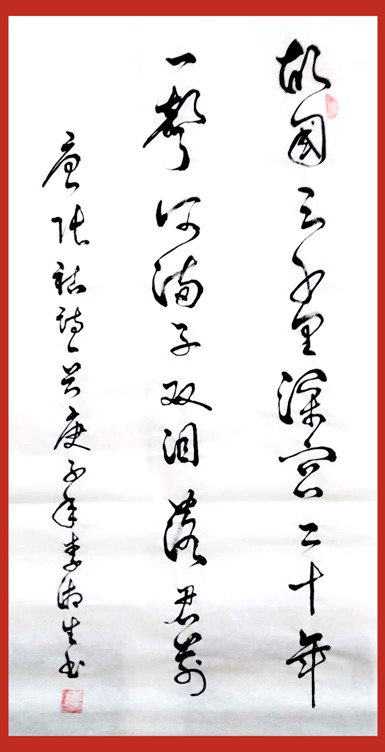 故国三千里深宫二十年
一声何满子双泪落君前
唐张祜诗一首庚子年李湘生书